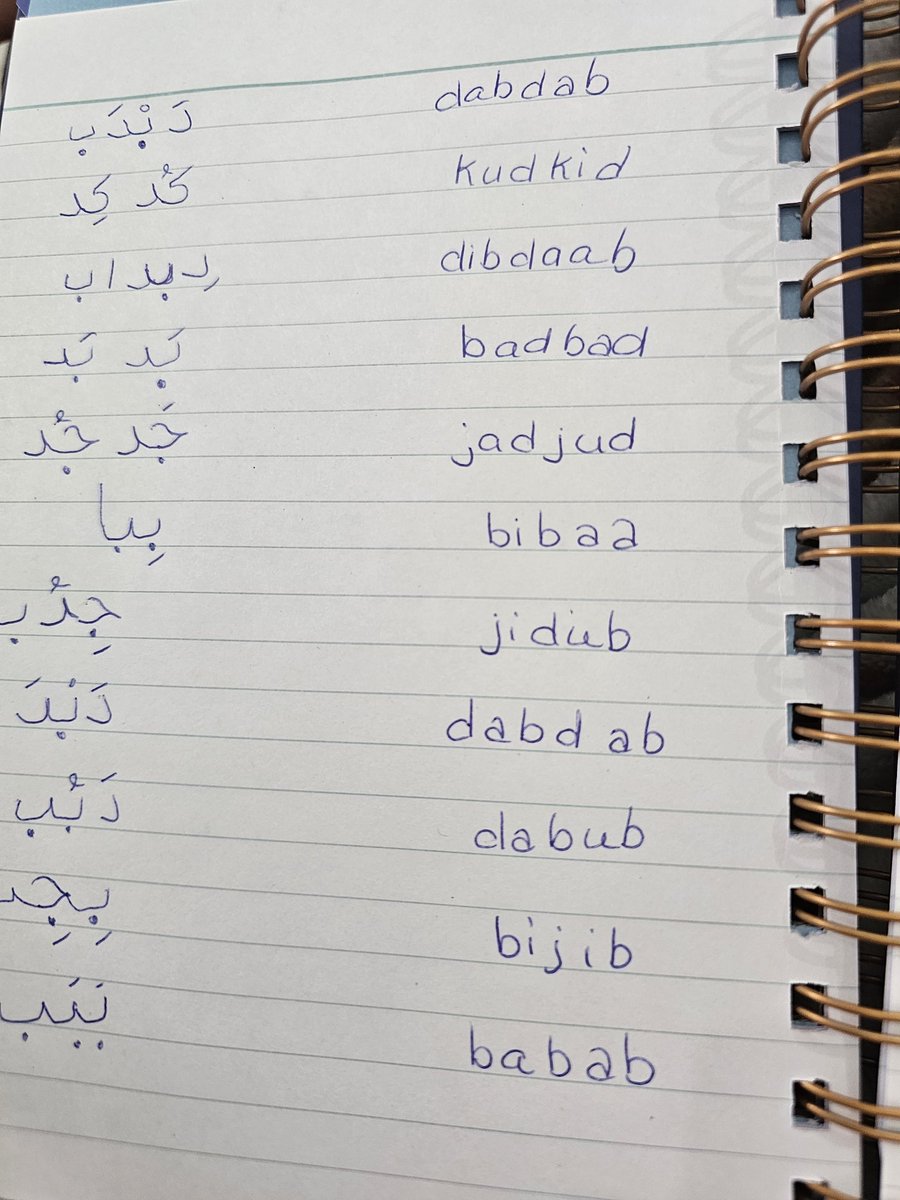 دَبْدَب dabdab
كُد كِد kudkid
دِبداب dibdaab
بَد بَد badbad
جَد جُد jadjud
بِبا bibaa
جِدُب jidub
دَبْدَ dabd ab
دَبُب dabub
bijib
بَبَب babab